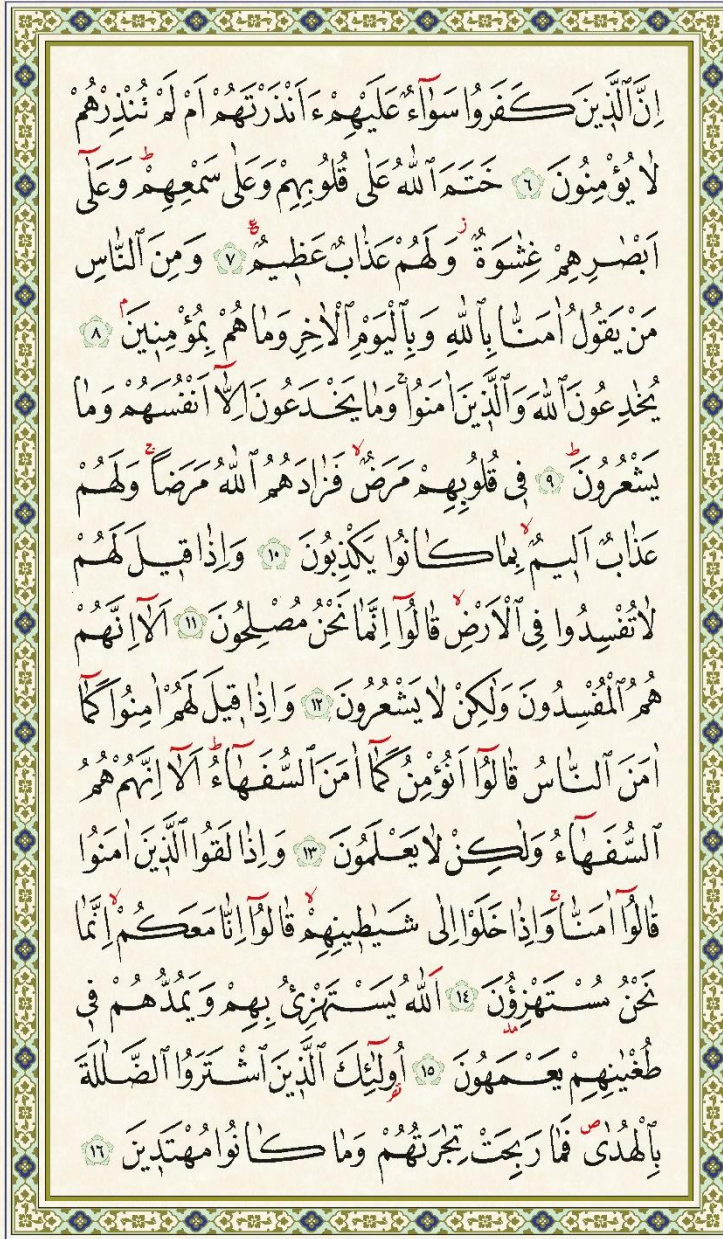 اِنَّ ٱلَّذ۪ينَ كَفَرُوا سَوَٓاءٌ عَلَيْهِمْ ءَاَنْذَرْتَهُمْ اَمْ لَمْ تُنْذِرْهُمْ
لَا يُؤْمِنُونَ ٦ خَتَمَ ٱللّٰهُ عَلٰى قُلُوبِهِمْ وَعَلٰى سَمْعِهِمْۜ وَعَلٰٓى
اَبْصَٰرِهِمْ غِشَٰوَةٌۘ وَلَهُمْ عَذَابٌ عَظ۪يمٌ ع ٧ وَمِنَ ٱلنَّاسِ
مَنْ يَقُولُ اٰمَنَّا بِٱللّٰهِ وَبِٱلْيَوْمِ ٱلْاٰخِرِ وَمَا هُمْ بِمُؤْمِن۪ينَۢ ٨
يُخَٰدِعُونَ ٱللّٰهَ وَٱلَّذ۪ينَ اٰمَنُواۚ وَمَا يَخْدَعُونَ اِلَّٓا اَنْفُسَهُمْ وَمَا
يَشْعُرُونَۜ ٩ ف۪ي قُلُوبِهِمْ مَرَضٌۙ فَزَادَهُمُ ٱللّٰهُ مَرَضًاۚ وَلَهُمْ
عَذَابٌ اَل۪يمٌۙ بِمَا كَانُوا يَكْذِبُونَ ١٠ وَاِذَا ق۪يلَ لَهُمْ
لَا تُفْسِدُوا فِي ٱلْاَرْضِۙ قَالُٓوا اِنَّمَا نَحْنُ مُصْلِحُونَ ١١ اَلَٓا اِنَّهُمْ
هُمُ ٱلْمُفْسِدُونَ وَلٰكِنْ لَا يَشْعُرُونَ ١٢ وَاِذَا ق۪يلَ لَهُمْ اٰمِنُوا كَمَٓا
اٰمَنَ ٱلنَّاسُ قَالُٓوا اَنُؤْمِنُ كَمَٓا اٰمَنَ ٱلسُّفَهَٓاءُۜ اَلَٓا اِنَّهُمْ هُمُ
ٱلسُّفَهَٓاءُ وَلٰكِنْ لَا يَعْلَمُونَ ١٣ وَاِذَا لَقُوا ٱلَّذ۪ينَ اٰمَنُوا
قَالُٓوا اٰمَنَّاۚ وَاِذَا خَلَوْا اِلٰى شَيَٰط۪ينِهِمْۙ قَالُٓوا اِنَّا مَعَكُمْۙ اِنَّمَا
نَحْنُ مُسْتَهْزِؤُ۫نَ ١٤ اَللّٰهُ يَسْتَهْزِئُ بِهِمْ وَيَمُدُّهُمْ ف۪ي
طُغْيَٰنِهِمْ يَعْمَهُونَ ١٥ اُو۬لٰٓئِكَ ٱلَّذ۪ينَ ٱشْتَرَوُا ٱلضَّلَٰلَةَ
بِٱلْهُدٰىۖ فَمَا رَبِحَتْ تِجَٰرَتُهُمْ وَمَا كَانُوا مُهْتَد۪ينَ ١٦